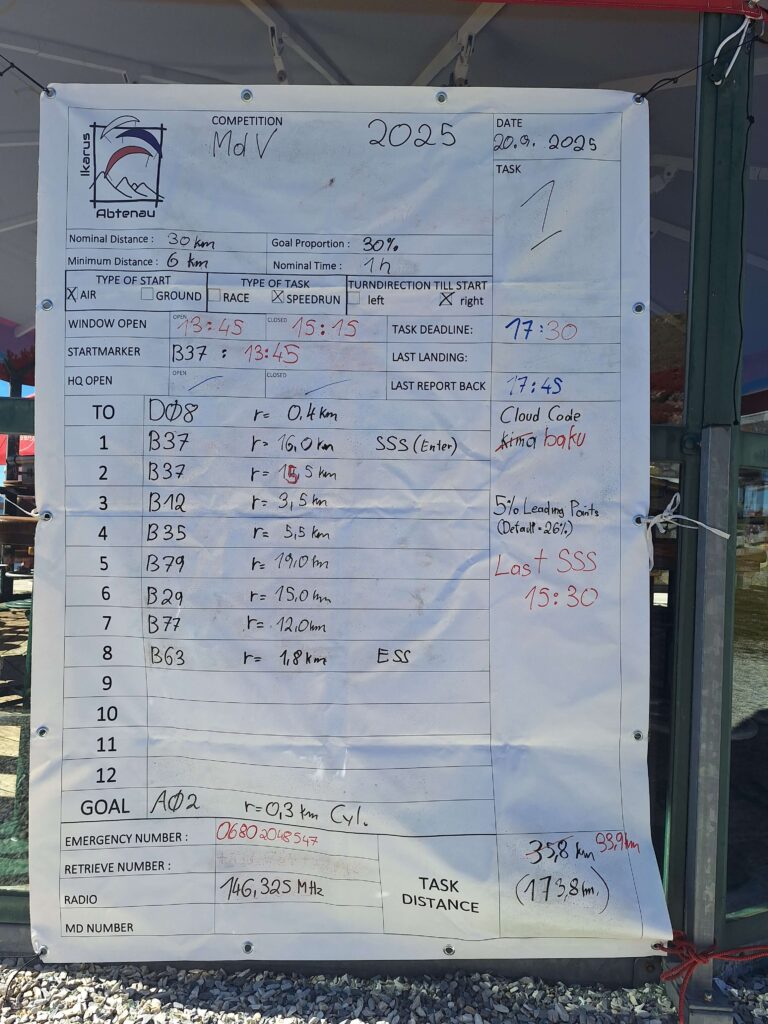 Ikarus
Abtenau
COMPETITION
MdV 2025
DATE
20.9.2025
TASK
1
Nominal Distance : 30 km Goal Proportion : 30%
Minimum Distance : 6 km Nominal Time : 1h
TYPE OF START TYPE OF TASK TURNDIRECTION TILL START
X AIR GROUND RACE X SPEEDRUN left X right
WINDOW OPEN OPEN 13:45 CLOSED 15:15 TASK DEADLINE: 17:30
STARTMARKER B37 : 13:45 LAST LANDING:
HQ OPEN OPEN CLOSED LAST REPORT BACK 17:45
TO DØ8 r= 0,4km Cloud Code
1 B37 r= 16,0km SSS (Enter) kima baku
2 B37 r= 15,5km
3 B12 r= 3,5km 5% Leading Points
4 B35 r= 5,5km (Defalt=26%)
5 B79 r= 19,0km Last SSS
6 B29 r= 15,0km 15:30
7 B77 r= 12,0km
8 B63 r= 1,8km ESS
9
10
11
12
GOAL AØ2 r=0,3km Cyl.
EMERGENCY NUMBER : 06802048547
RETRIEVE NUMBER :
RADIO 146,325 MHz
MD NUMBER
TASK
DISTANCE
35,8 km
(173,8km)